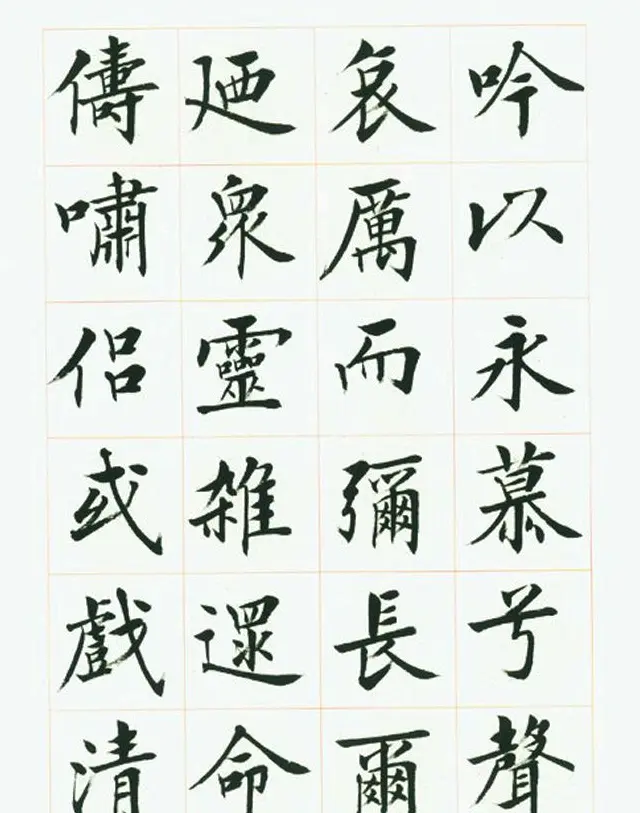 吟以永慕兮聲
哀厲而彌長爾
廼衆靈雑遝命
儔嘯侶或戲清